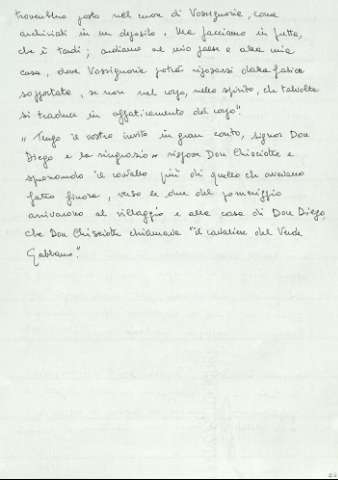 troverebbero posto nel cuore di Vossignoria, come
archiviati in un deposito. Ma facciamo in fretta,
che è tardi; andiamo al mio paese e alla mia
casa, dove Vossignoria potrà riposarsi dalla fatica
sopportata, se non nel corpo, nello spirito, che talvolta
si traduce in affaticamento del corpo".
"Tengo il vostro invito in gran conto, signor Don
Diego e la ringrazio" rispose Don Chisciotte e
spronando il cavallo più di quello che avevano
fatto finora, verso le due del pomeriggio
arrivarono al villaggio e alla casa di Don Diego,
che Don Chisciotte chiamava "il cavaliere dal Verde
Gabbano".